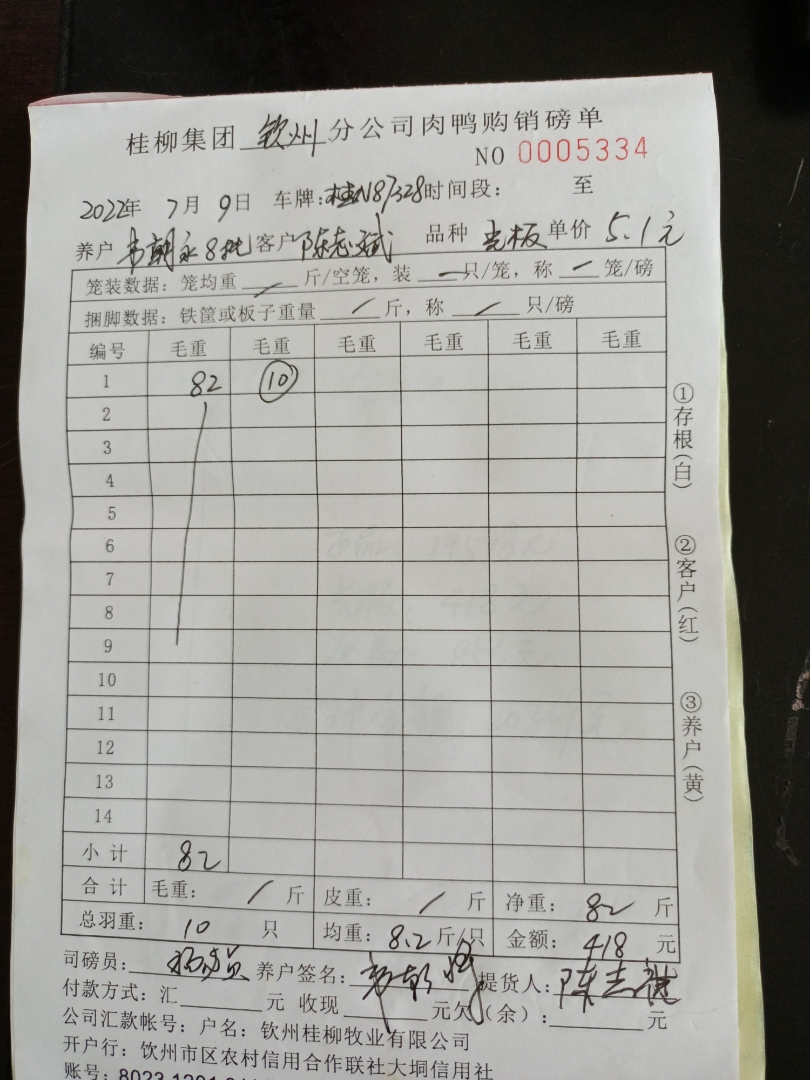 桂柳集团 钦州 分公司肉鸭购销磅单
NO 0005334
2022年 7月 9日 车牌:桂N87328 时间段: 至
养户 韦朝永8批 客户 陈志斌 品种 光板 单价 5.1元
笼装数据：笼均重 / 斤/空笼，装 一 只/笼，称 一 笼/磅
捆脚数据：铁筐或板子重量 / 斤，称 / 只/磅
编号 毛重 毛重 毛重 毛重 毛重 毛重
1 82 10
2
3
4
5
6
7
8
9
10
11
12
13
14
小计 82
合计 毛重： / 斤 皮重： / 斤 净重： 82 斤
总羽重： 10 只 均重：8.2斤/只 金额：418 元
司磅员： 养户签名： 提货人：陈志
付款方式：汇 元 收现 元欠(余)： 元
公司汇款帐号：户名：钦州桂柳牧业有限公司
开户行：钦州市区农村信用合作联社大垌信用社
账号：8023 1201
①存根(白)
②客户(红)
③养户(黄)